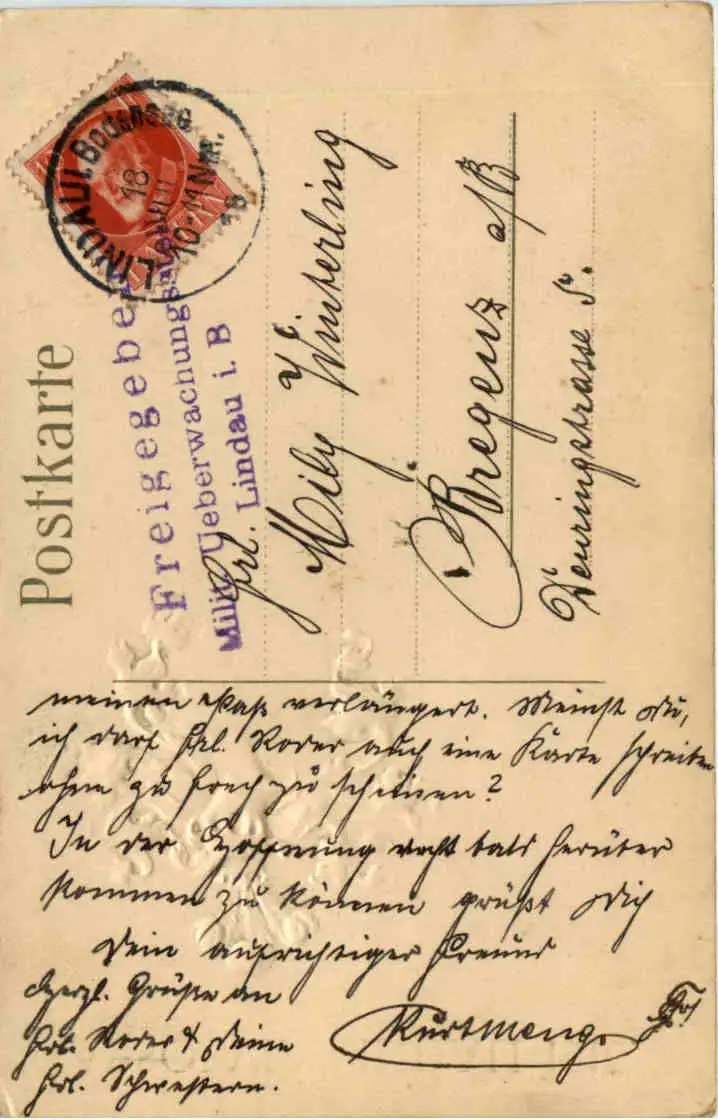 Postkarte
LINDAU i. Bodensee
18
10-11 Nm.
18
Freigegeben
Milit. Ueberwachungsstelle
Lindau i. B
Frl.
Mily Winterling
Bregenz a/B
Deuringstrasse 5.
meinen Paß verlängert. Meinst Du,
ich darf Frl. Roder auch eine Karte schreiben
ohne zu frech zu scheinen?
In der Hoffnung recht bald herüber
kommen zu können grüßt Dich
Dein aufrichtiger Freund
Kurt Meng.
Herzl. Grüße an
Frl. Roder & Deine
Frl. Schwestern.